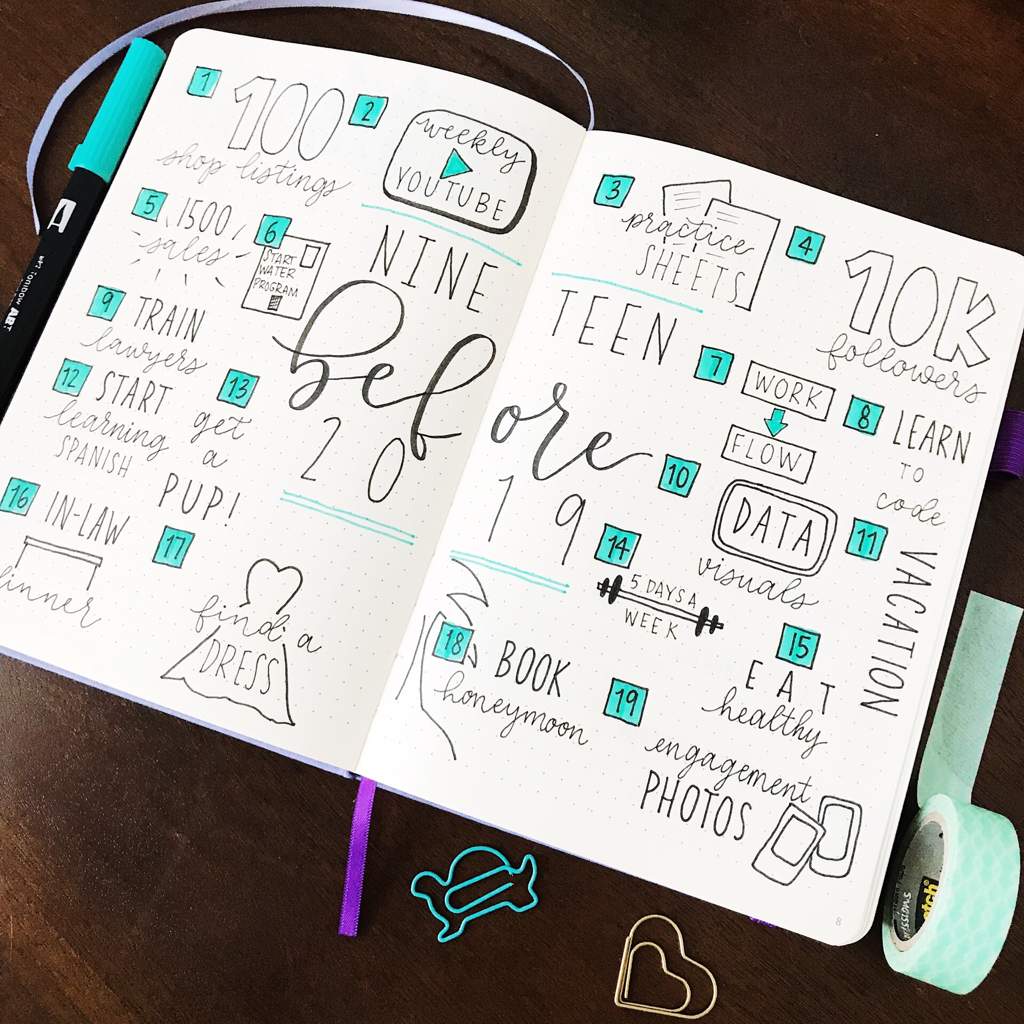 1
100
shop listings
2
weekly
YOUTUBE
5
1500
sales
6
START
WATER
PROGRAM
9
TRAIN
lawyers
12
START
learning
SPANISH
13
get
a
PUP!
16
IN-LAW
dinner
17
find a
DRESS
NINE TEEN
before
20 19
3
practice
SHEETS
4
10K
followers
7
WORK
FLOW
8
LEARN
TO
code
10
DATA
visuals
11
VACATION
14
5 DAYS A
WEEK
15
EAT
healthy
18
BOOK
honeymoon
19
engagement
PHOTOS
8